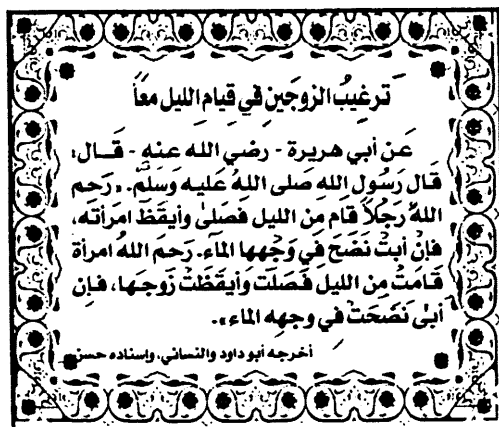 ترغيبُ الزوجَين في قيام الليل معاً
عَن أبي هريرة - رضي الله عنه - قَال:
قَال رَسُول الله صَلى اللهُ عَليه وَسَلّم: «رَحِم
اللهُ رَجُلاً قَام مِن الليل فَصَلىٰ وأيقظَ امرَأته،
فإنْ أبتْ نَضَحَ في وَجْهِها الماءَ. رَحِمَ اللهُ امرأة
قامَتْ مِن الليل فَصَلّت وَأيقظَتْ زَوجَها، فإن
أبىٰ نَضَحَتْ في وجهِه الماء».
أخرجه أبو داود والنسائي، وإسناده حسن